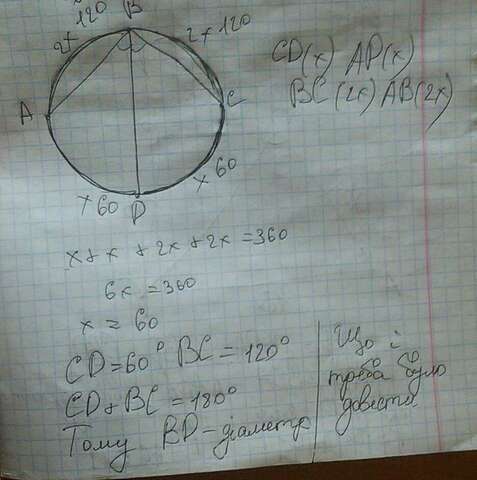 120 B
2x 2x 120
CD(x) AD(x)
BC(2x) AB(2x)
A C
x 60
x 60 D
x + x + 2x + 2x = 360
6x = 360
x = 60
CD = 60° BC = 120°
CD + BC = 180°
Тому BD - діаметр
Що і
треба було
довести